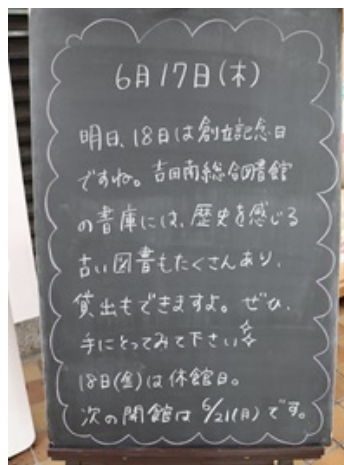 6月17日(木)
明日、18日は創立記念日
ですね。吉田南総合図書館
の書庫には、歴史を感じる
古い図書もたくさんあり、
貸出もできますよ。ぜひ、
手にとってみて下さい
18日(金)は休館日。
次の開館は6/21(月)です。